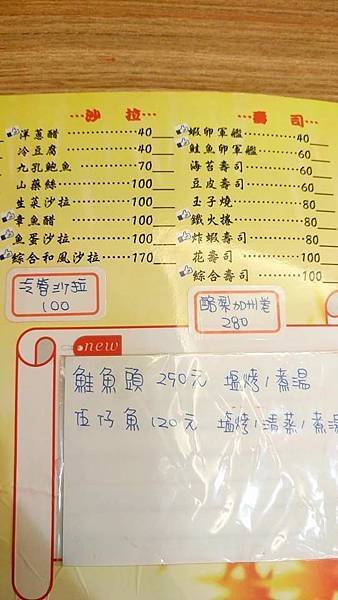 …沙 拉…
洋蔥醋 ………… 40
冷豆腐 ………… 40
九孔鮑魚 ……… 70
山藥絲 ………… 100
生菜沙拉 ……… 100
章魚醋 ………… 100
魚蛋沙拉 ……… 100
綜合和風沙拉 … 170
冷脊沙拉
100
…壽 司…
蝦卵軍艦 ……… 40
鮭魚卵軍艦 …… 60
海苔壽司 ……… 60
豆皮壽司 ……… 60
玉子燒 ………… 80
鐵火捲 ………… 80
炸蝦壽司 ……… 80
花壽司 ………… 100
綜合壽司 ……… 100
酪梨加州卷
280
new
鮭魚頭 290元 塩烤/煮湯
伍仔魚 120元 塩烤/清蒸/煮湯